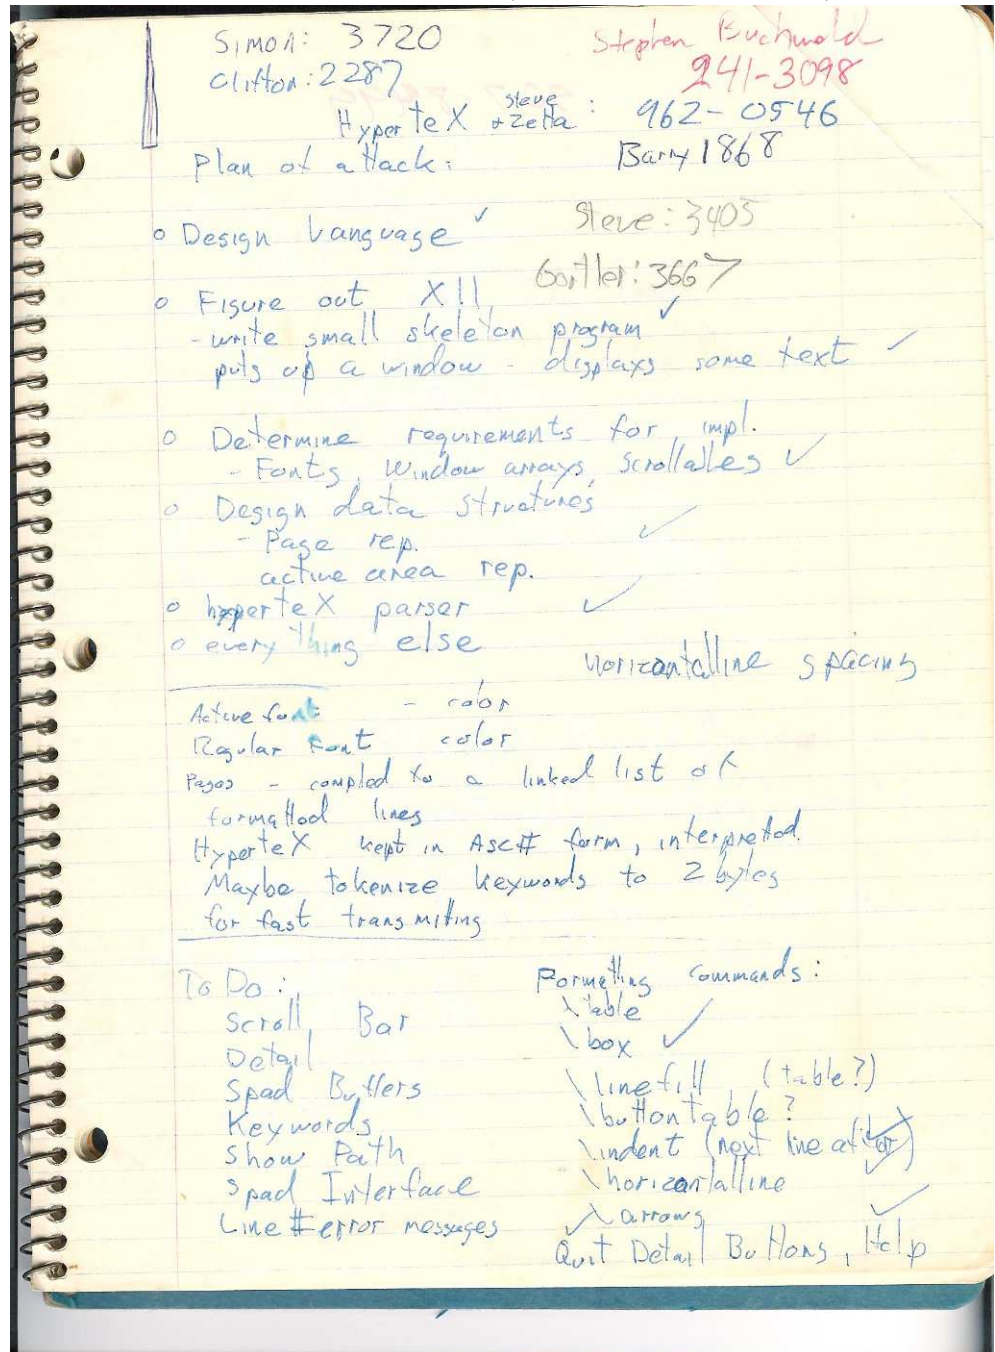 Simon: 3720
Stephen Buchwald
Clifton: 2287
241-3098
HyperTeX steve + Zetta : 962-0546
Plan of attack:
Barry 1868
o Design Language ✓
Steve: 3405
Gortler: 3667
o Figure out X11
- write small skeleton program ✓
puts up a window - displays some text ✓
o Determine requirements for impl.
- Fonts, Window arrays, scrollables ✓
o Design data structures
- Page rep. ✓
active area rep.
o hyperTeX parser ✓
o everything else
horizontalline spacing
Active font - color
Regular Font color
Pages - compled to a linked list of
formatted lines
HyperTeX kept in ASCII form, interpreted.
Maybe tokenize keywords to 2 bytes
for fast transmitting
To Do:
Scroll Bar
Detail
Spad Buffers
Keywords
Show Path
Spad Interface
Line # error messages
Formatting Commands:
\table
\box ✓
\linefill (table?)
\buttontable?
\indent (next line at
\horizontalline ✓
✓ \arrows
Quit Detail Buttons, Help ✓